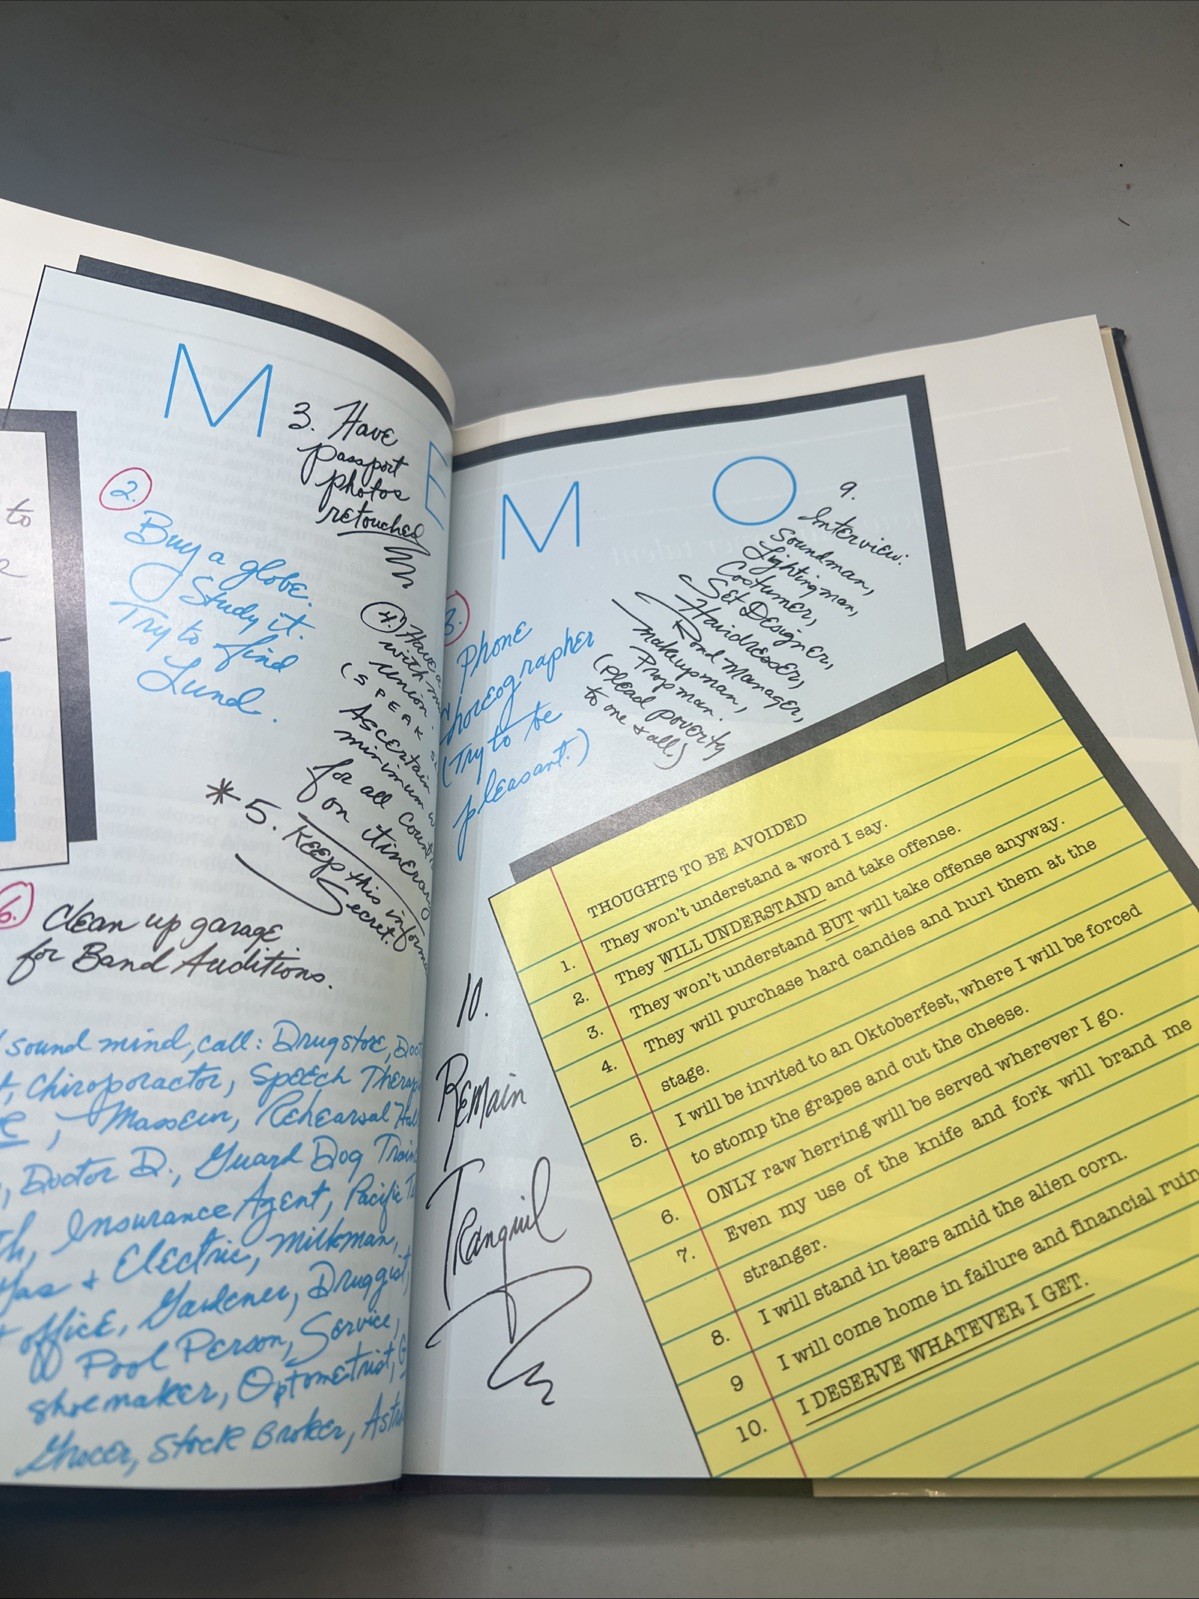 to
MEMO
2.
Buy a globe.
Study it.
Try to find
Lund.
3. Have
passport
photos
retouched
4. Have
with
union.
(SPEAK
Ascertain
minimum
for all
on itinerary
* 5. Keep this
Secret.
6. Clean up garage
for Band Auditions.
sound mind, call: Drugstore,
Chiroporactor, Speech
Masseur, Rehearsal
Doctor D., Guard Dog
Insurance Agent, Pacific
Gas + Electric, Milkman,
office, Gardener, Druggist,
Pool Person, Service,
shoemaker, Optometrist,
Grocer, Stock Broker,
Phone
Choreographer
(Try to be
pleasant.)
9.
Interview:
Soundman,
Lightingman,
Costumer,
Set Designer,
Hairdresser,
Road Manager,
Makeupman,
Propman.
(plead poverty
to one + all)
10.
Remain
Tranquil
THOUGHTS TO BE AVOIDED
1. They won't understand a word I say.
2. They WILL UNDERSTAND and take offense.
3. They won't understand BUT will take offense anyway.
4. They will purchase hard candies and hurl them at the
stage.
5. I will be invited to an Oktoberfest, where I will be forced
to stomp the grapes and cut the cheese.
6. ONLY raw herring will be served wherever I go.
7. Even my use of the knife and fork will brand me
stranger.
8. I will stand in tears amid the alien corn.
9 I will come home in failure and financial ruin
10. I DESERVE WHATEVER I GET.